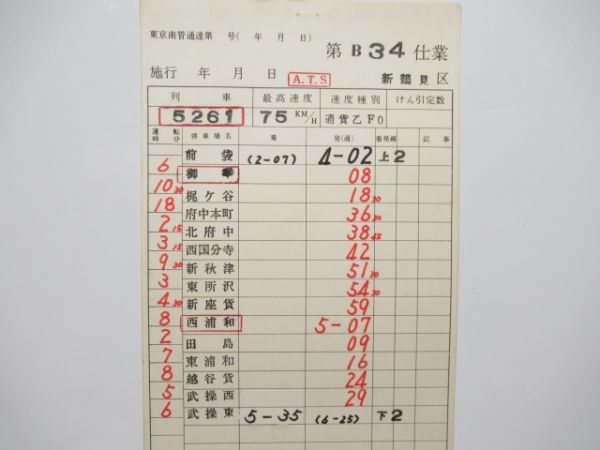 東京南管通達第 号( 年 月 日)
第 B 34 仕業
施行 年 月 日 A.T.S 新鶴見区
列車 最高速度 速度種別 けん引定数
5261 75 KM/H 通貨乙F0
運転時分 停車場名 着 発(通) 着発線 記事
前袋 (2-07) 4-02 上2
6 御幸 08
10 30 梶ケ谷 18 30
18 府中本町 36 30
2 15 北府中 38 45
3 15 西国分寺 42
9 30 新秋津 51 30
3 東所沢 54 30
4 30 新座貨 59
8 西浦和 5-07
2 田島 09
7 東浦和 16
8 越谷貨 24
5 武操西 29
6 武操東 5-35 (6-25) 下2